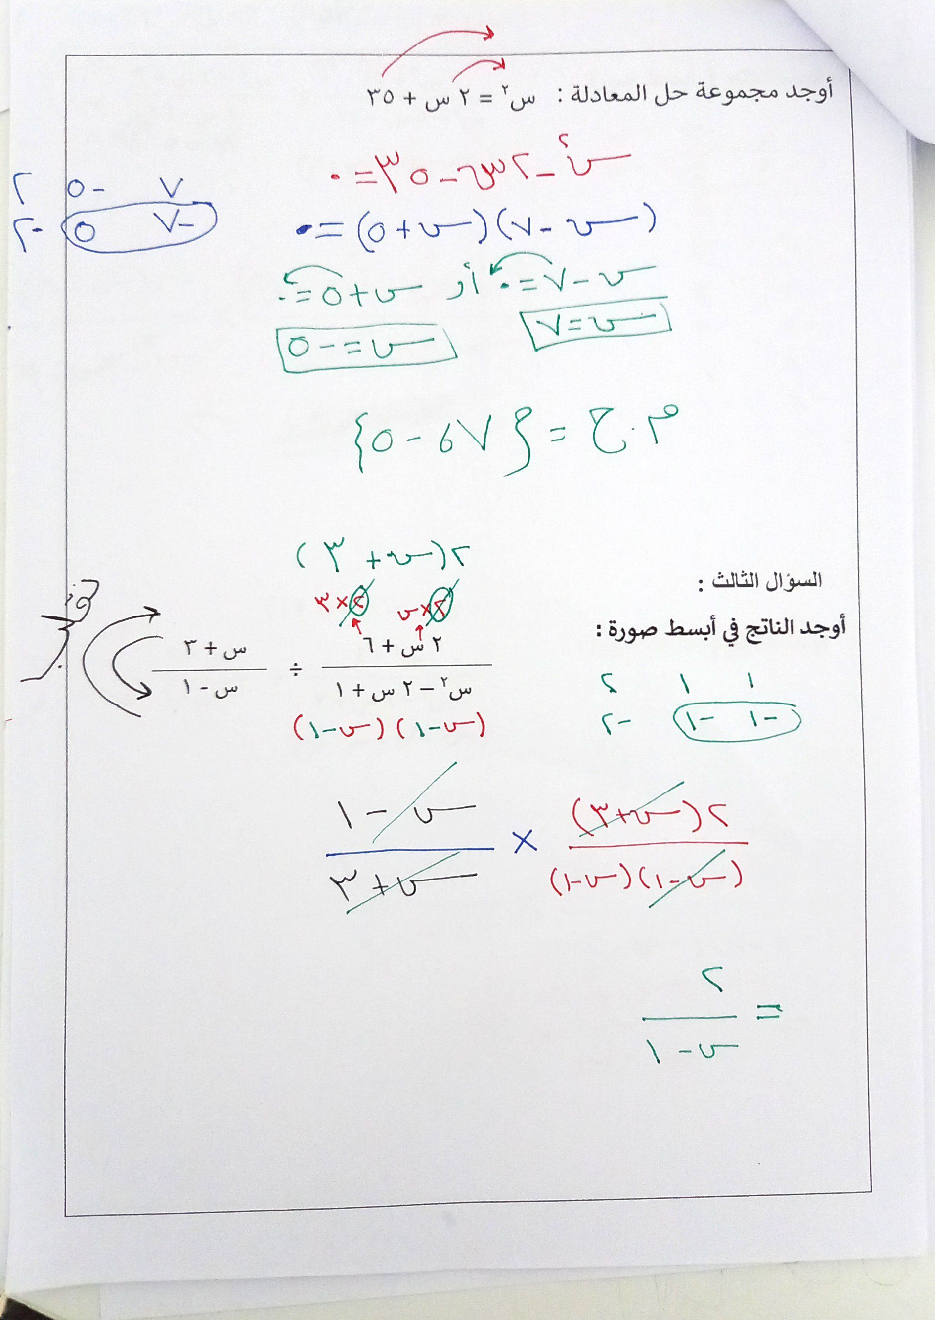 أوجد مجموعة حل المعادلة : س² = ٢ س + ٣٥
س² - ٢س - ٣٥ = ٠
٧ ٥- ٢
(س - ٧)(س + ٥) = ٠
٧- ٥ ٢-
س - ٧ = ٠ أو س + ٥ = ٠
س = ٧ س = -٥
م.ح = {٧ ، -٥}
٢(س + ٣)
السؤال الثالث :
٢×س ٢×٣
أوجد الناتج في أبسط صورة :
٢ س + ٦ ÷ س + ٣
س² − ٢ س + ١ س - ١
١ ١ ٢
١- ١- ٢-
(س-١)(س-١)
٢(س+٣) × س - ١
(س-١)(س-١) س + ٣
= ٢
س - ١